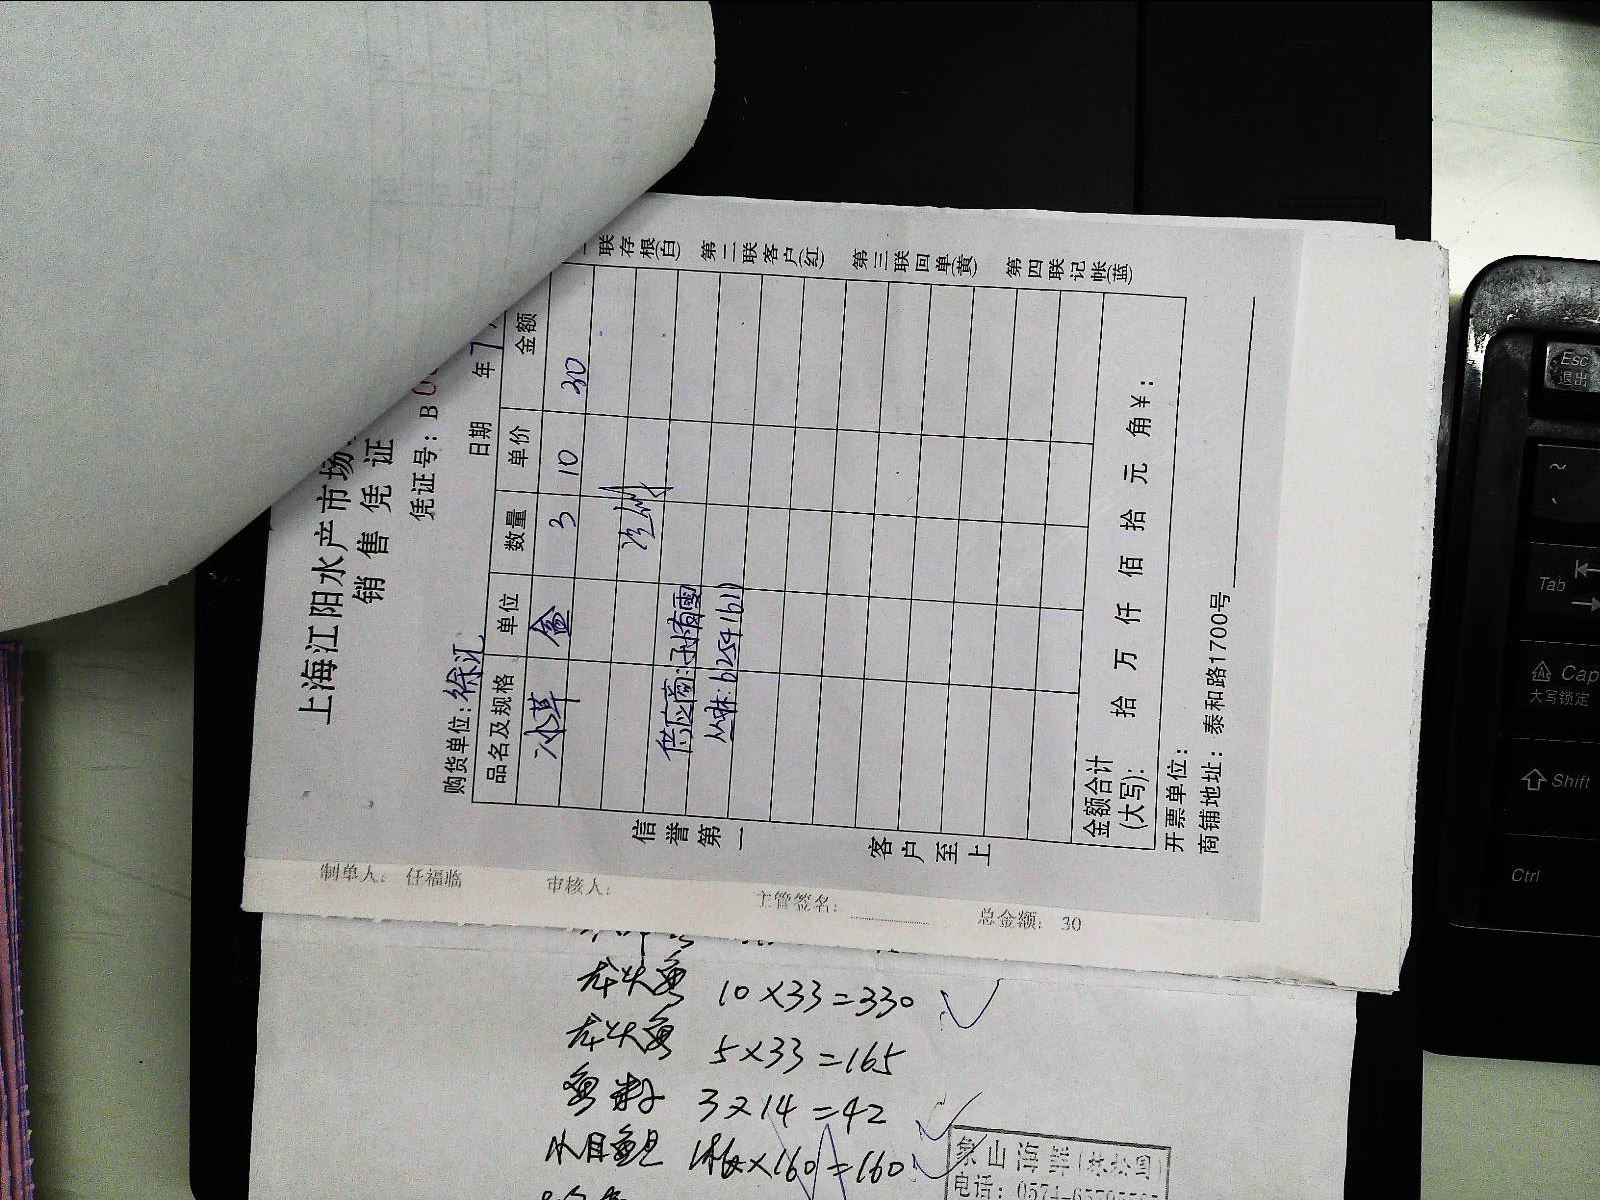 上海江阳水产市场
销售凭证
凭证号：B
购货单位：徐汇 日期 年 7
品名及规格 单位 数量 单价 金额
冰草 盒 3 10 30
供应商：孙有雷
信誉第一
客户至上
联存根(白)
第二联客户(红)
第三联回单(黄)
第四联记帐(蓝)
金额合计
(大写)： 拾 万 仟 佰 拾 元 角￥：
开票单位：
商铺地址：泰和路1700号
制单人： 任福临 审核人： 主管签名： 总金额： 30
龙头鱼 10×33=330
龙头鱼 5×33=165
3×14=42
×160=160
象山
电话：0574-
Esc
退出
~
Tab
Cap
大写锁定
Shift
Ctrl